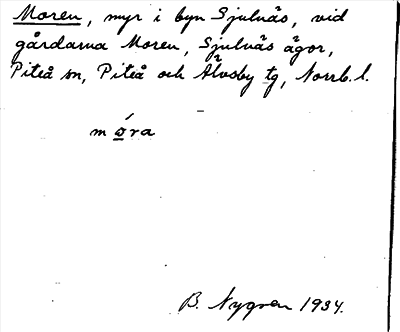 Moren, myr i byn Sjulnäs, vid
gårdarna Moren, Sjulnäs ägor,
Piteå sn, Piteå och Älvsby tg, Norrb. l.
móra
B. Nygren 1934.